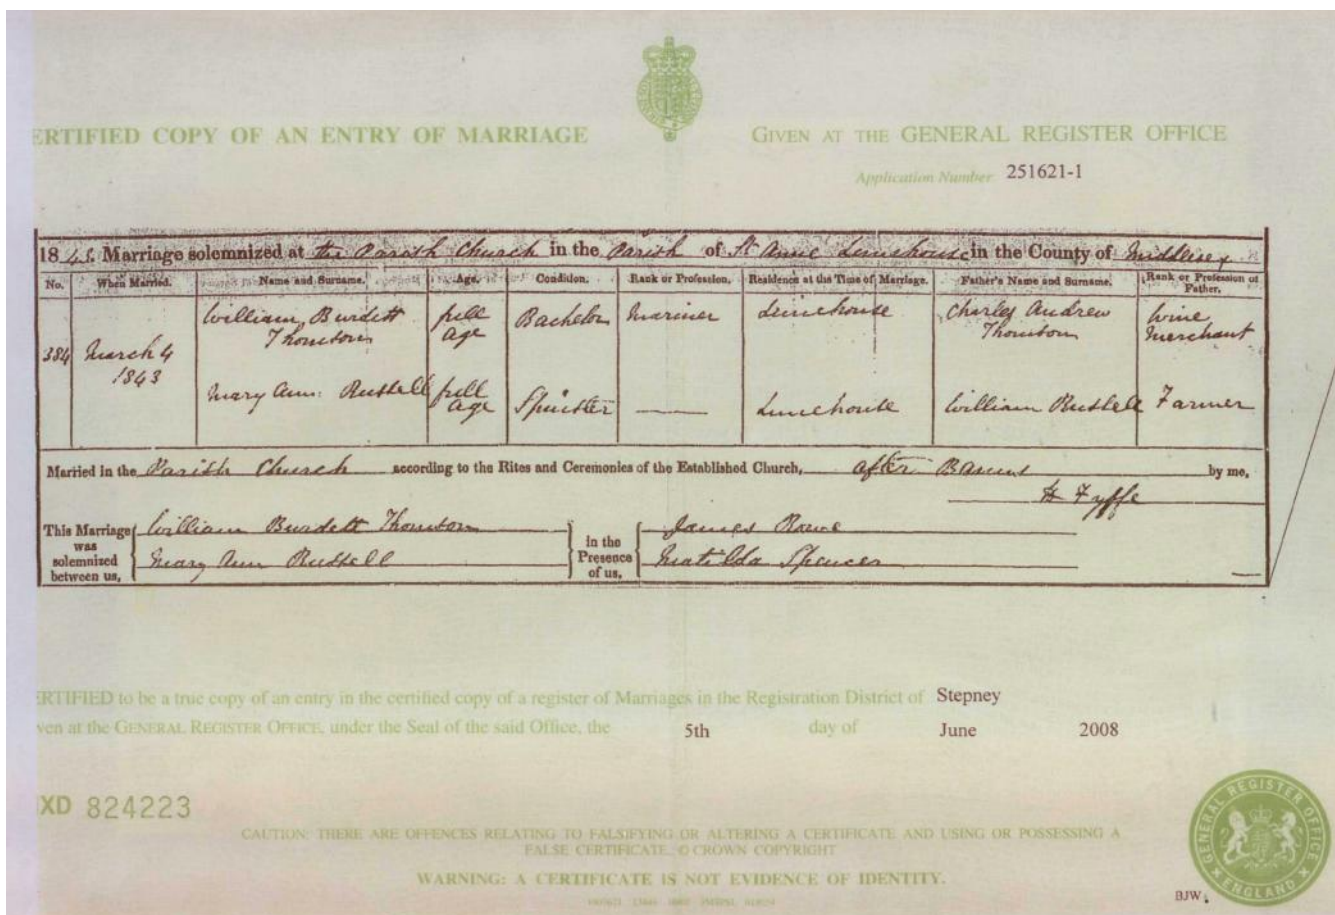 ERTIFIED COPY OF AN ENTRY OF MARRIAGE
GIVEN AT THE GENERAL REGISTER OFFICE
Application Number 251621-1
1843. Marriage solemnized at the Parish Church in the Parish of St Anne Limehouse in the County of Middlesex
No. When Married. Name and Surname. Age. Condition. Rank or Profession. Residence at the Time of Marriage. Father's Name and Surname. Rank or Profession of Father.
384 March 4 1843 William Burdett Thomson full age Bachelor Mariner Limehouse Charles Andrew Thomson Wine Merchant
Mary Ann Russell full age Spinster — Limehouse William Russell Farmer
Married in the Parish Church according to the Rites and Ceremonies of the Established Church, after Banns by me,
H Fyffe
This Marriage was solemnized between us, William Burdett Thomson
Mary Ann Russell
in the Presence of us, James Rowe
Matilda Spencer
ERTIFIED to be a true copy of an entry in the certified copy of a register of Marriages in the Registration District of Stepney
ven at the GENERAL REGISTER OFFICE, under the Seal of the said Office, the 5th day of June 2008
XD 824223
CAUTION: THERE ARE OFFENCES RELATING TO FALSIFYING OR ALTERING A CERTIFICATE AND USING OR POSSESSING A
FALSE CERTIFICATE. © CROWN COPYRIGHT
WARNING: A CERTIFICATE IS NOT EVIDENCE OF IDENTITY.
GENERAL REGISTER OFFICE
ENGLAND
BJW